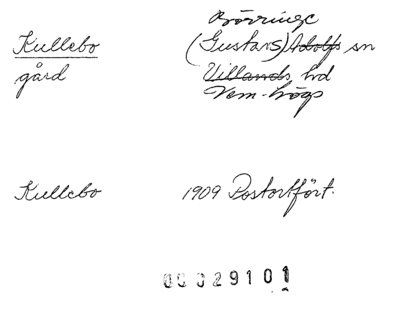 Börringe
Kullebo (Gustavs) Adolfs sn
gård Villands hd
Vem-högs
Kullebo 1909 Postortfört.
00029101